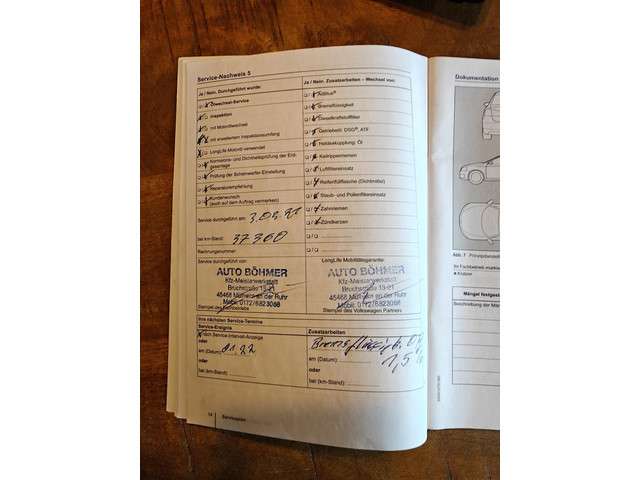 Service-Nachweis 5
Ja / Nein, Durchgeführt wurde:
Ölwechsel-Service
Inspektion
mit Motorölwechsel
mit erweitertem Inspektionsumfang
LongLife-Motoröl verwendet
Karosserie- und Dichtheitsprüfung der Erdgasanlage
Prüfung der Scheinwerfer-Einstellung
Reparaturempfehlung
Kundenwunsch
(auch auf dem Auftrag vermerken)
Service durchgeführt am:
bei km-Stand: 37360
Rechnungsnummer:
Service durchgeführt von:
AUTO BÖHMER
Kfz-Meisterwerkstatt
Bruchstraße 15-21
45468 Mülheim an der Ruhr
Mobil: 0172/6823086
Stempel des
Ja / Nein, Zusatzarbeiten – Wechsel von:
AdBlue®
Bremsflüssigkeit
Dieselkraftstofffilter
Getriebeöl: DSG®, ATF
Haldexkupplung: Öl
Keilrippenriemen
Luftfiltereinsatz
Reifenfüllflasche (Dichtmittel)
Staub- und Pollenfiltereinsatz
Zahnriemen
Zündkerzen
LongLife Mobilitätsgarantie:
AUTO BÖHMER
Kfz-Meisterwerkstatt
Bruchstraße 15-21
45468 Mülheim an der Ruhr
Mobil: 0172/6823086
Stempel des Volkswagen Partners
Ihre nächsten Service-Termine
Service-Ereignis
nach Service-Intervall-Anzeige
oder
am (Datum): 01.22
oder
bei (km-Stand):
Zusatzarbeiten
am (Datum):
oder
bei (km-Stand):
14 Serviceplan
Dokumentation
Abb. 7
Ihr Fachbetrieb
Kratzer
Mängel festgest
Beschreibung der Män